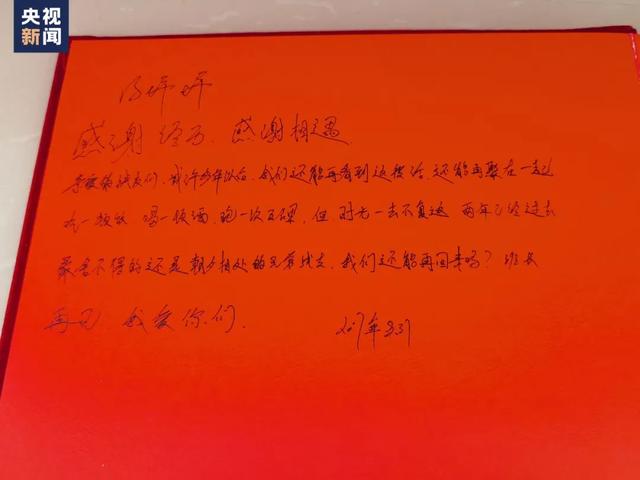 央视
新闻
感谢经历、感谢相遇
亲爱的战友们,或许多年以后,我们还能再看到这段话,还能再聚在一起
吃一顿饭,喝一顿酒,跑一次五公里,但时光一去不复返,两年已经过去
最舍不得的还是朝夕相处的兄弟战友,我们还能再回来吗?班长
再见,我爱你们.